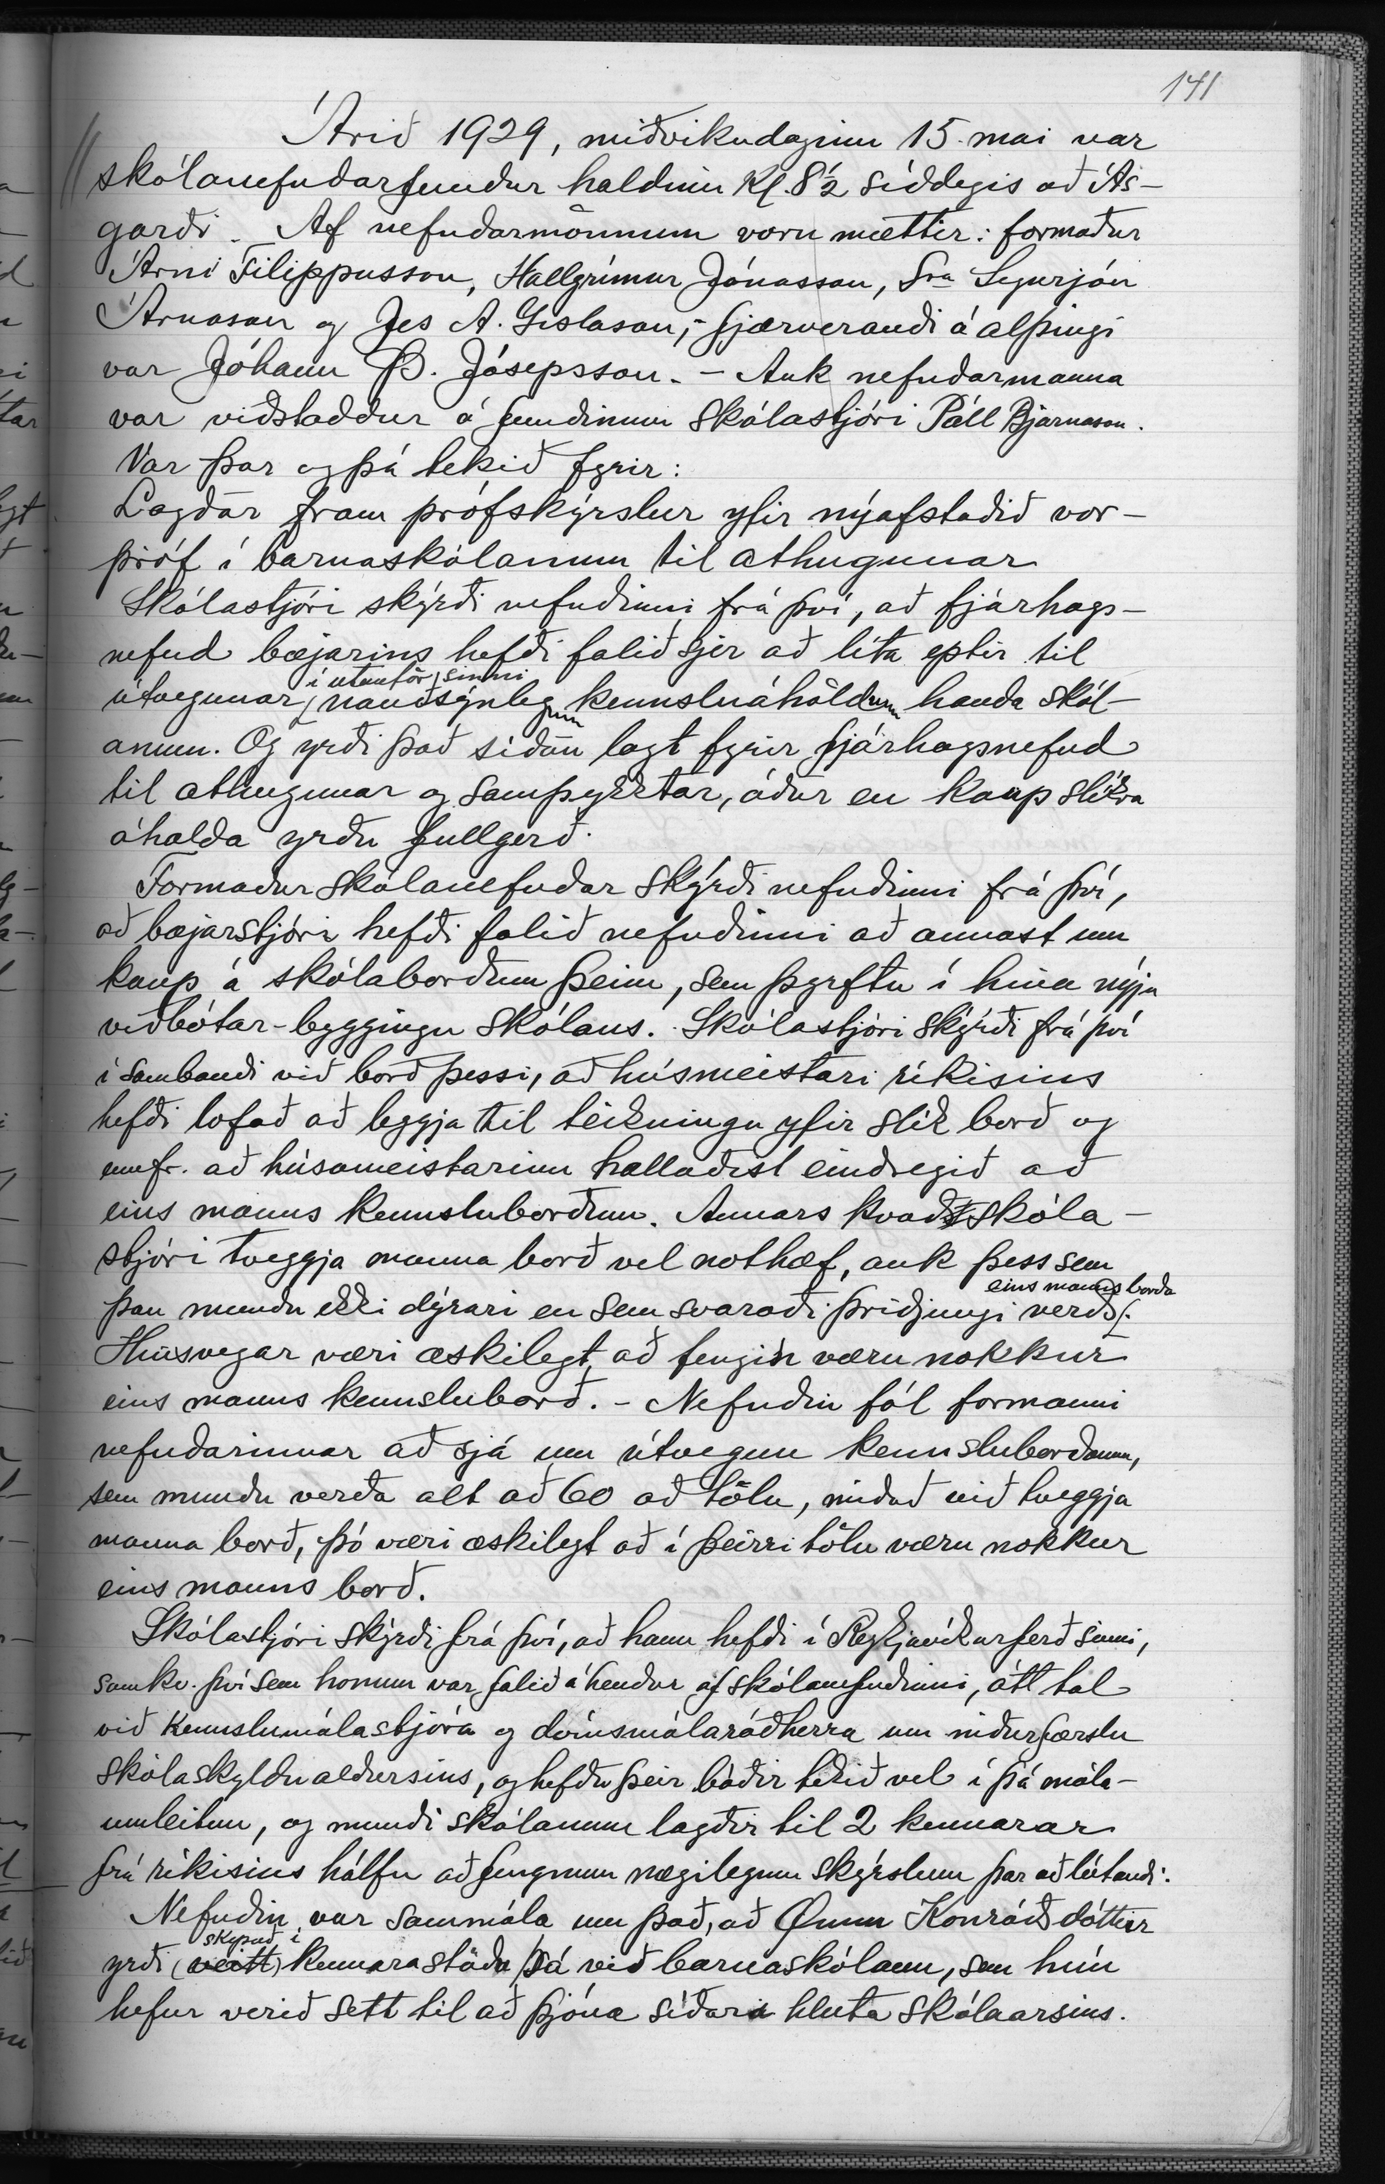 141
Árið 1929, miðvikudaginn 15. mai var
skólanefndarfundur haldinn Kl. 8½ síðdegis að Ás-
garði. Af nefndarmönnum voru mættir: formaður
Árni Filippusson, Hallgrímur Jónasson, Sra Sigurjón
Árnason og Jes A. Gíslason; - fjærverandi á alþingi
var Jóhann Þ. Jósepsson. - Auk nefndarmanna
var viðstaddur á fundinum skólastjóri Páll Bjarnason.
Var þar og þá tekið fyrir:
Lagðar fram prófskýrslur yfir nýafstaðið vor-
próf í barnaskólanum til athugunar
Skólastjóri skýrði nefndinni frá því, að fjárhags-
nefnd bæjarins hefði falið sjer að líta eptir til
í utanför sinni
útvegunar nauðsynlegum kennsluáhöldum handa skól-
anum. Og yrði það síðan lagt fyrir fjárhagsnefnd
til athugunar og samþykktar, áður en kaup slíkra
áhalda yrðu fullgerð.
Formaður skólanefndar skýrði nefndinni frá því,
að bæjarstjóri hefði falið nefndinni að annast um
kaup á skólaborðum þeim, sem þyrftu í hina nýju
viðbótar-byggingu skólans. Skólastjóri skýrði frá því
í sambandi við borð þessi, að húsmeistari ríkisins
hefði lofað að leggja til teikningu yfir slík borð og
ennfr. að húsameistarinn hallaðist eindregið að
eins manns kennsluborðum. Annars kvað skóla-
stjóri tveggja manna borð vel nothæf, auk þess sem
eins manns borða
þau mundu ekki dýrari en sem svaraði þriðjungi verðs.
Hinsvegar væri æskilegt, að fengin væru nokkur
eins manns kennsluborð. - Nefndin fól formanni
nefndarinnar að sjá um útvegun kennsluborðanna,
sem mundu verða alt að 60 að tölu, miðað við tveggja
manna borð, þó væri æskilegt að í þeirri tölu væru nokkur
eins manns borð.
Skólastjóri skýrði frá því, að hann hefði í Reykjavíkurferð sinni,
samkv. því sem honum var falið á hendur af skólanefndinni, átt tal
við Kennslumálastjóra og dómsmálaráðherra um niðurfærslu
skólaskyldualdursins, og hefðu þeir báðir tekið vel í þá mála-
umleitun, og mundi skólanum lagðir til 2 kennarar
frá ríkisins hálfu að fengnum nægilegum skýrslum þar að lútandi.
Nefndin var sammála um það, að Önnu Konráðsdóttur
skipuð í
yrði (veitt) kennarastöðu þá við barnaskólann, sem hún
hefur verið sett til að þjóna síðari hluta skólaarsins.